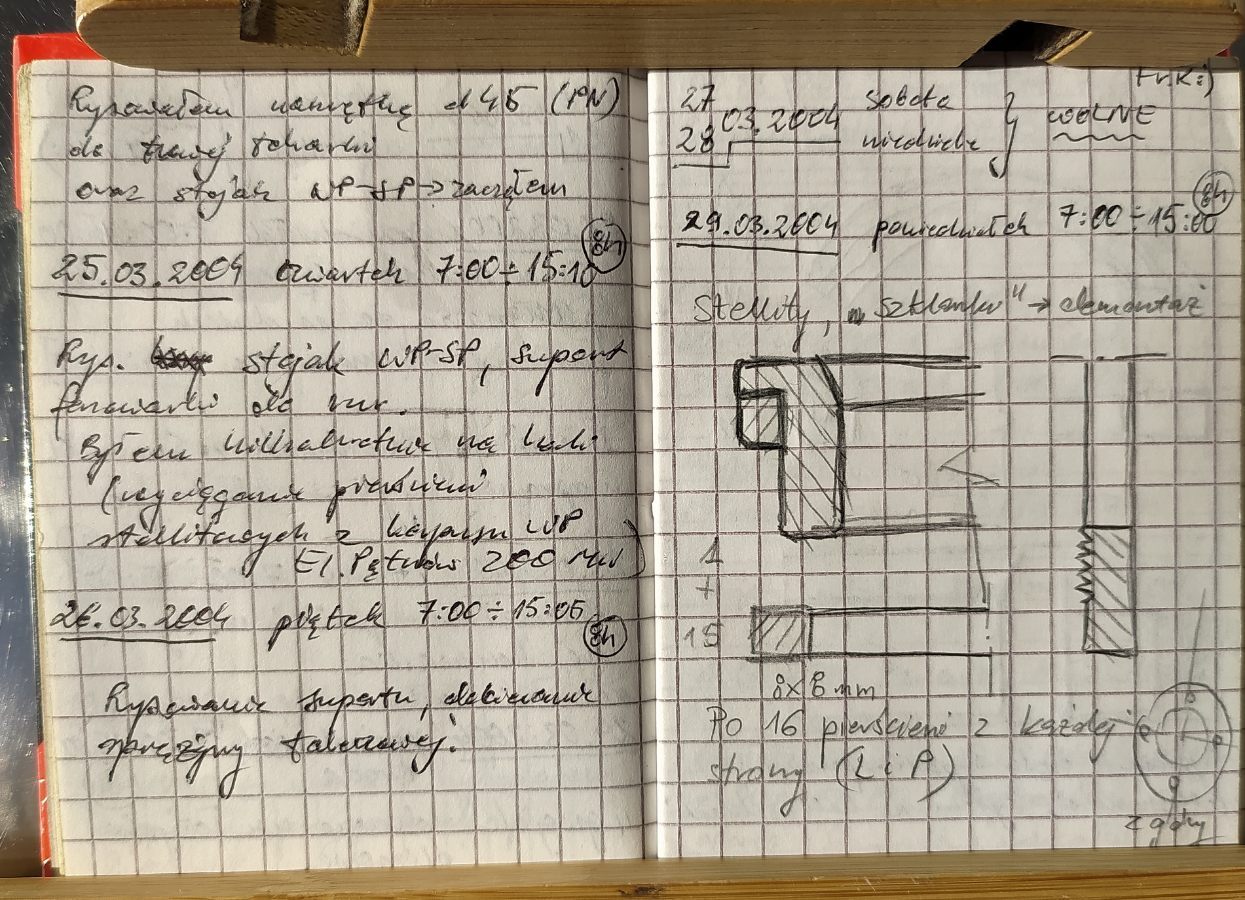 Rysowałem nakrętkę d 45 (PN)
do nowej tokarki
oraz stojak WP-SP → zacząłem
8h
25.03.2004 czwartek 7:00 ÷ 15:10
Rys. stojak WP-SP, suport
do rur.
Byłem na hali
(wyciąganie pierścieni
stellitowych z korpusu WP
El. Pątnów 200 MW)
26.03.2004 piątek 7:00 ÷ 15:06
8h
Rysowanie suportu, dobieranie
sprężyny talerzowej.
27 03.2004 sobota
28 niedziela WOLNE
8h
29.03.2004 poniedziałek 7:00 ÷ 15:00
Stellity, „Szklanki" → demontaż
1
+
15
8x8 mm
Po 16 pierścieni z każdej
strony (L i P)
z góry